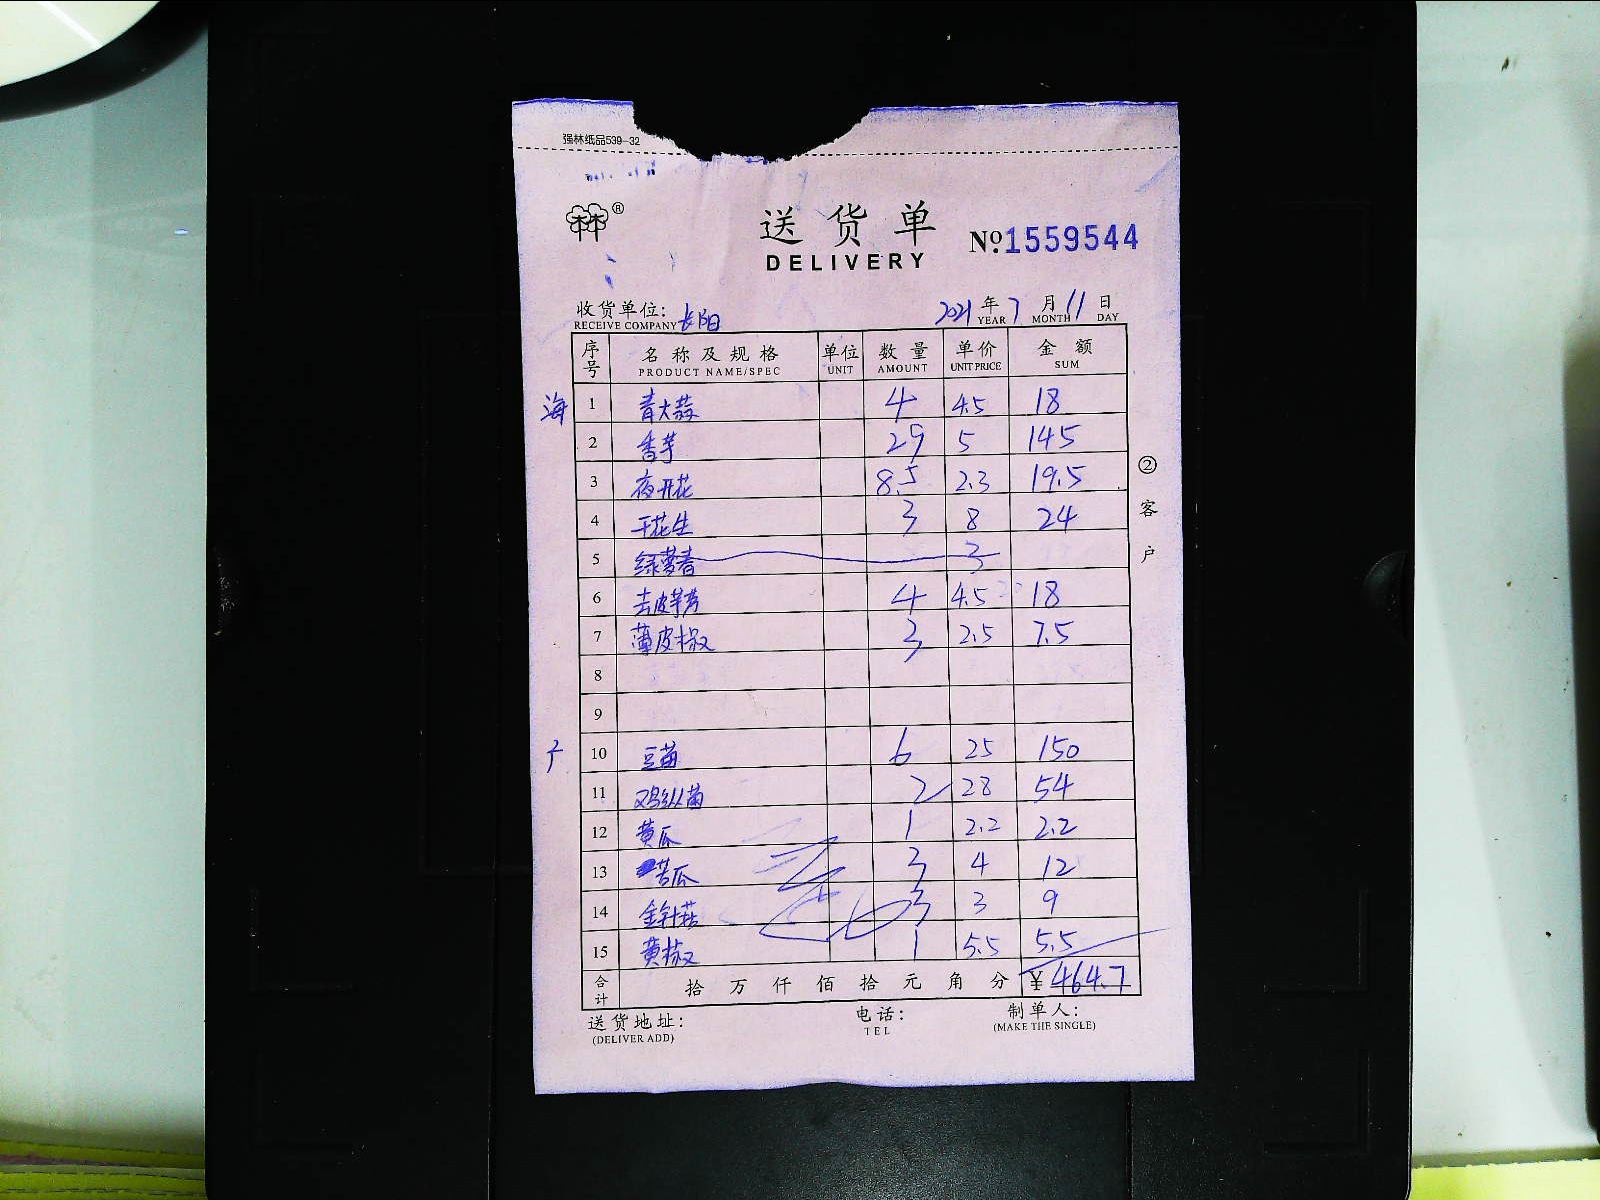 强林纸品539-32
林®
送货单 №1559544
DELIVERY
收货单位: 长阳 2021年7月11日
RECEIVE COMPANY YEAR MONTH DAY
序号 名称及规格 单位 数量 单价 金额
PRODUCT NAME/SPEC UNIT AMOUNT UNIT PRICE SUM
海 1 青大蒜 4 4.5 18
2 香芋 29 5 145
3 夜开花 8.5 2.3 19.5
4 干花生 3 8 24
5 3
6 去皮芋艿 4 4.5 18
7 薄皮椒 3 2.5 7.5
8
9
10 豆苗 6 25 150
11 鸡枞菌 2 28 54
12 黄瓜 1 2.2 2.2
13 苦瓜 3 4 12
14 金针菇 3 3 9
15 黄椒 1 5.5 5.5
合计 拾万仟佰拾元角分 ¥464.7
送货地址: 电话: 制单人:
(DELIVER ADD) TEL (MAKE THE SINGLE)
②客户